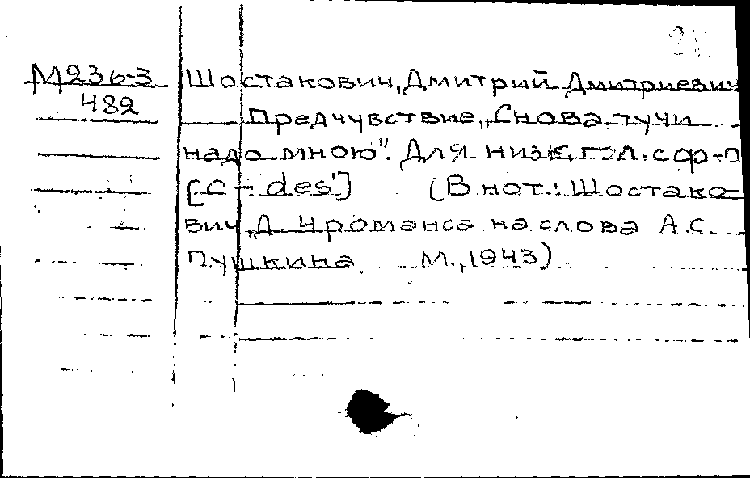 М236-3 Шостакович, Дмитрий Дмитриевич
482 Предчувствие „Снова тучи
надо мною". Для низк. гол. с ф-п
[c - des'] (В нот.: Шостако-
вич, Д. 4 романса на слова А.С.
Пушкина М., 1943)